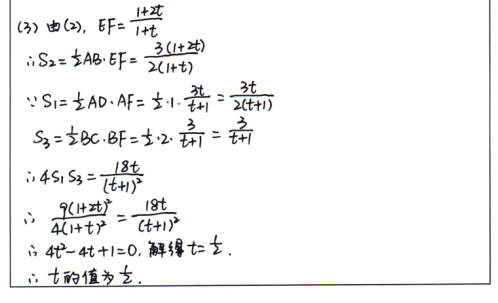 (3) 由(2), EF=\frac{1+2t}{1+t}
∴S2=\frac{1}{2}AB·EF=\frac{3(1+2t)}{2(1+t)}
∵S1=\frac{1}{2}AD·AF=\frac{1}{2}·1·\frac{3t}{t+1}=\frac{3t}{2(t+1)}
S3=\frac{1}{2}BC·BF=\frac{1}{2}·2·\frac{3}{t+1}=\frac{3}{t+1}
∴4S1S3=\frac{18t}{(t+1)^2}
∴\frac{9(1+2t)^2}{4(1+t)^2}=\frac{18t}{(t+1)^2}
∴4t^2-4t+1=0, 解得t=\frac{1}{2}.
∴t的值为\frac{1}{2}.